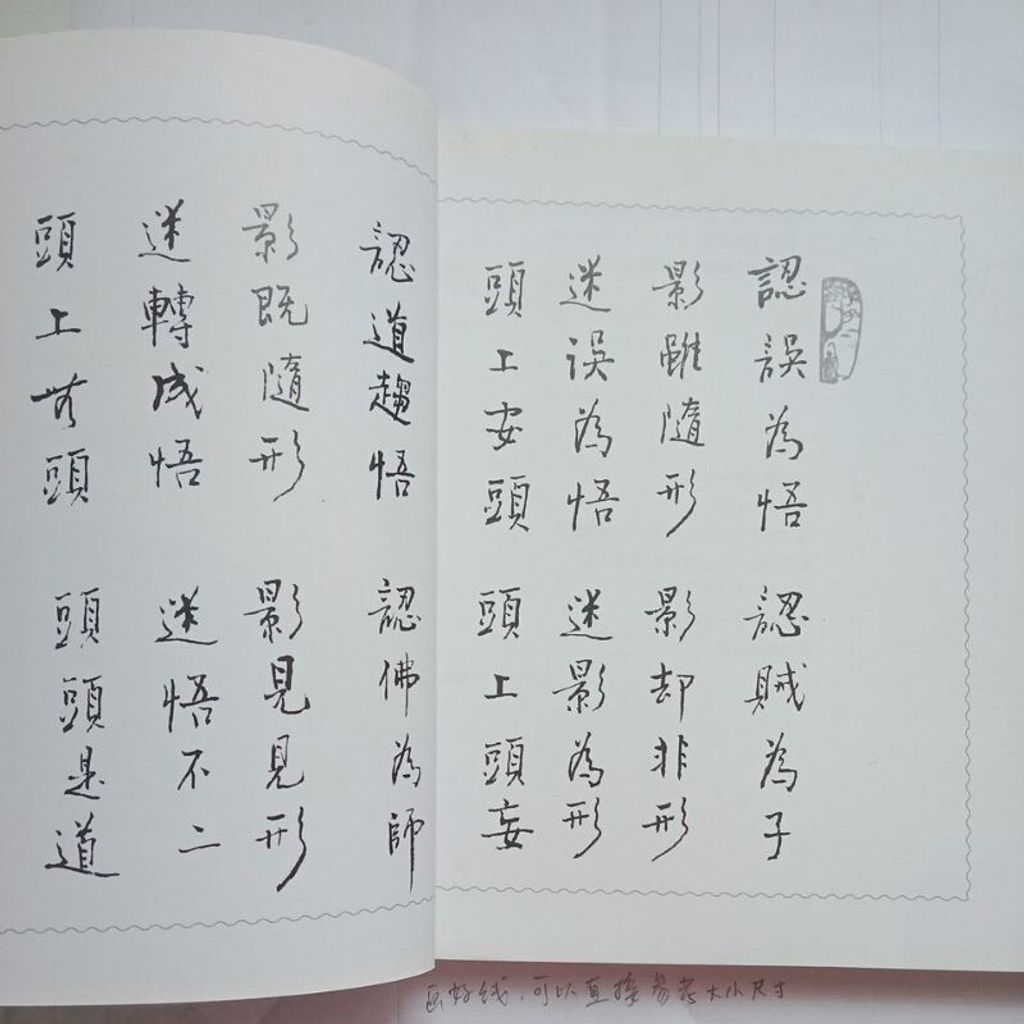 認誤為悟 認賊為子
影雖隨形 影却非形
迷误為悟 迷影為形
頭上安頭 頭上頭妄
認道趨悟 認佛為師
影既隨形 影見見形
迷轉成悟 迷悟不二
頭上無頭 頭頭是道
画好线,可以直接参考大小尺寸